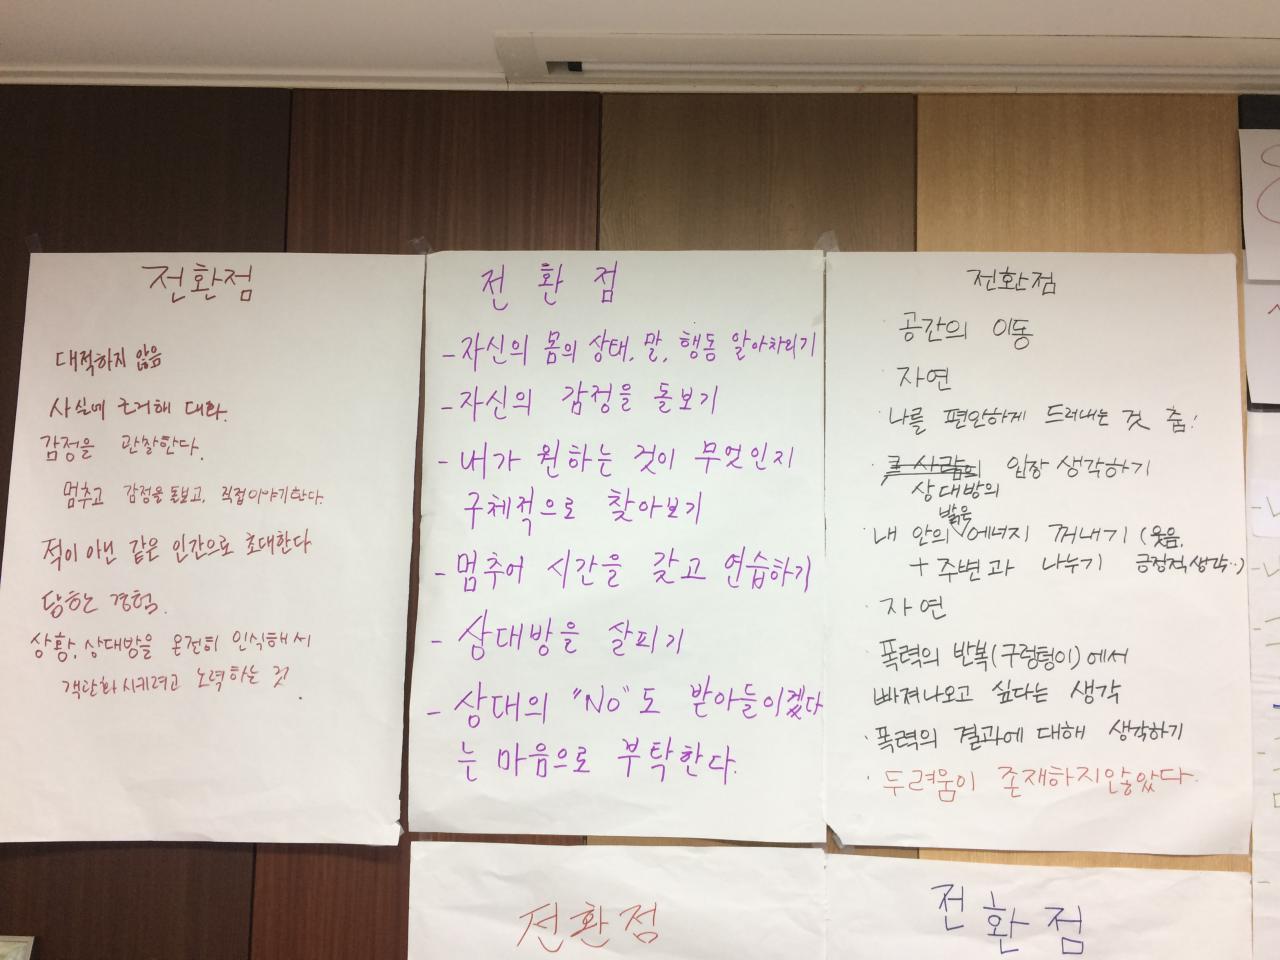 전환점
대적하지 않음
사실에 근거해 대화.
감정을 관찰한다.
멈추고 감정을 돌보고, 직접이야기한다.
적이 아닌 같은 인간으로 초대한다
당한 경험.
상황, 상대방을 온전히 인식해서
객관화시키려고 노력하는 것.
전환점
- 자신의 몸의 상태, 말, 행동 알아차리기
- 자신의 감정을 돌보기
- 내가 원하는 것이 무엇인지
구체적으로 찾아보기
- 멈추어 시간을 갖고 연습하기
- 상대방을 살피기
- 상대의 "No"도 받아들이겠다
는 마음으로 부탁한다.
전환점
· 공간의 이동
· 자연
· 나를 편안하게 드러내는 것 춤!
· 입장 생각하기
상대방의
밝은
· 내 안의 에너지 꺼내기 (웃음,
+ 주변과 나누기 긍정적생각..)
· 자연
· 폭력의 반복(구렁텅이)에서
빠져나오고 싶다는 생각
· 폭력의 결과에 대해 생각하기
· 두려움이 존재하지않았다.
전환점
전환점